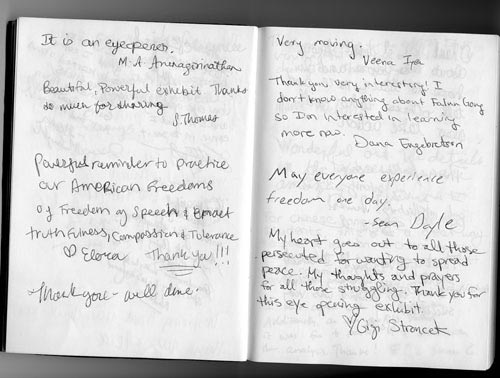 It is an eyeopener.
M.A.
Beautiful, Powerful exhibit Thanks
so much for sharing
S Thomas
Powerful reminder to practice
our American Freedoms
of Freedom of Speech & Enact
truthfulness, Compassion & Tolerance
♡ Elora Thank you!!!
Thank you - well done.
Very moving.
Veena
Thank you, very interesting! I
don't know anything about Falun Gong
so I'm interested in learning
more now.
Dana Engebretson
May everyone experience
freedom one day.
- Sean Doyle
My heart goes out to all those
persecuted for wanting to spread
peace. My thoughts and prayers
for all those struggling. Thank you for
this eye opening exhibit.
♡ Gigi